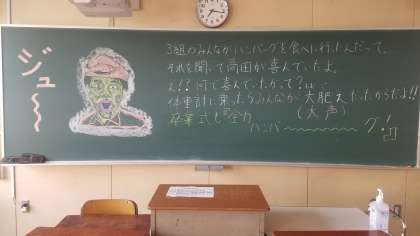 ジュ〜〜
3組のみんながハンバーグを食べに行ったんだって。
それを聞いて高田が喜んでいたよ。
え!?何で喜んでいたかって?
体重計に乗ったらみんなが大肥えだったからだよ!!
(大声)
卒業式も全力
ハンバ〜〜〜〜グ!!